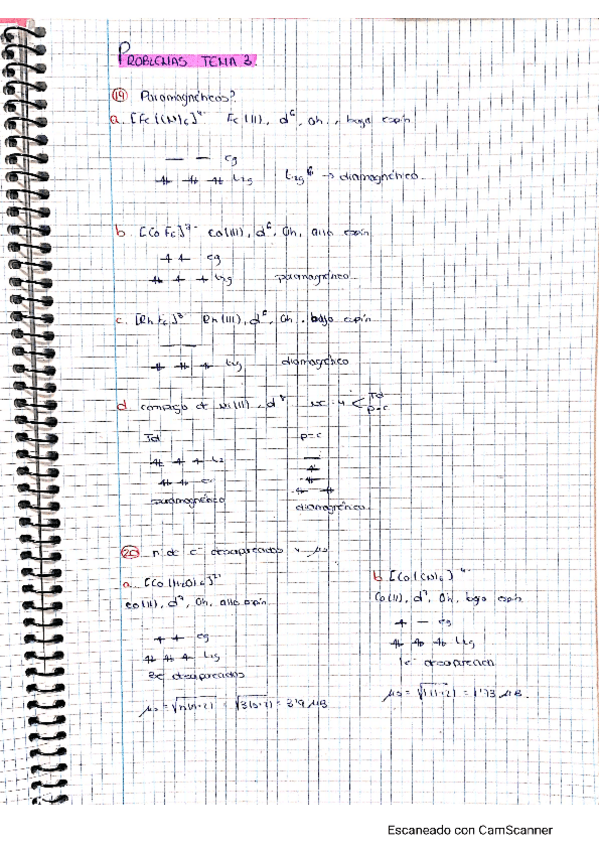 PROBLEMAS TEMA 3.
19 Paramagnéticos?
a. [Fe(CN)6]4- Fe(II), d6, Oh, bajo espín
eg
t2g t2g6 → diamagnético.
b. [CoF6] Co(III), d6, Oh, alto espín
eg
t2g paramagnético
c. [RhF6]3- Rh(III), d6, Oh, bajo espín
t2g diamagnético
d. complejo de Ni(II), d8 NC=4 < Td
p-c
Td p-c
t2
e
paramagnético
diamagnético.
20 nº de e- desapareados y μs
a. [Co(H2O)6]2+
Co(II), d7, Oh, alto espín
eg
t2g
3e- desapareados
μs = √n(n+2) = √3(3+2) = 3'9 μB
b [Co(CN)6]4-
Co(II), d7, Oh, bajo espín
eg
t2g
1e- desapareado
μs = √1(1+2) = 1'73 μB.
Escaneado con CamScanner